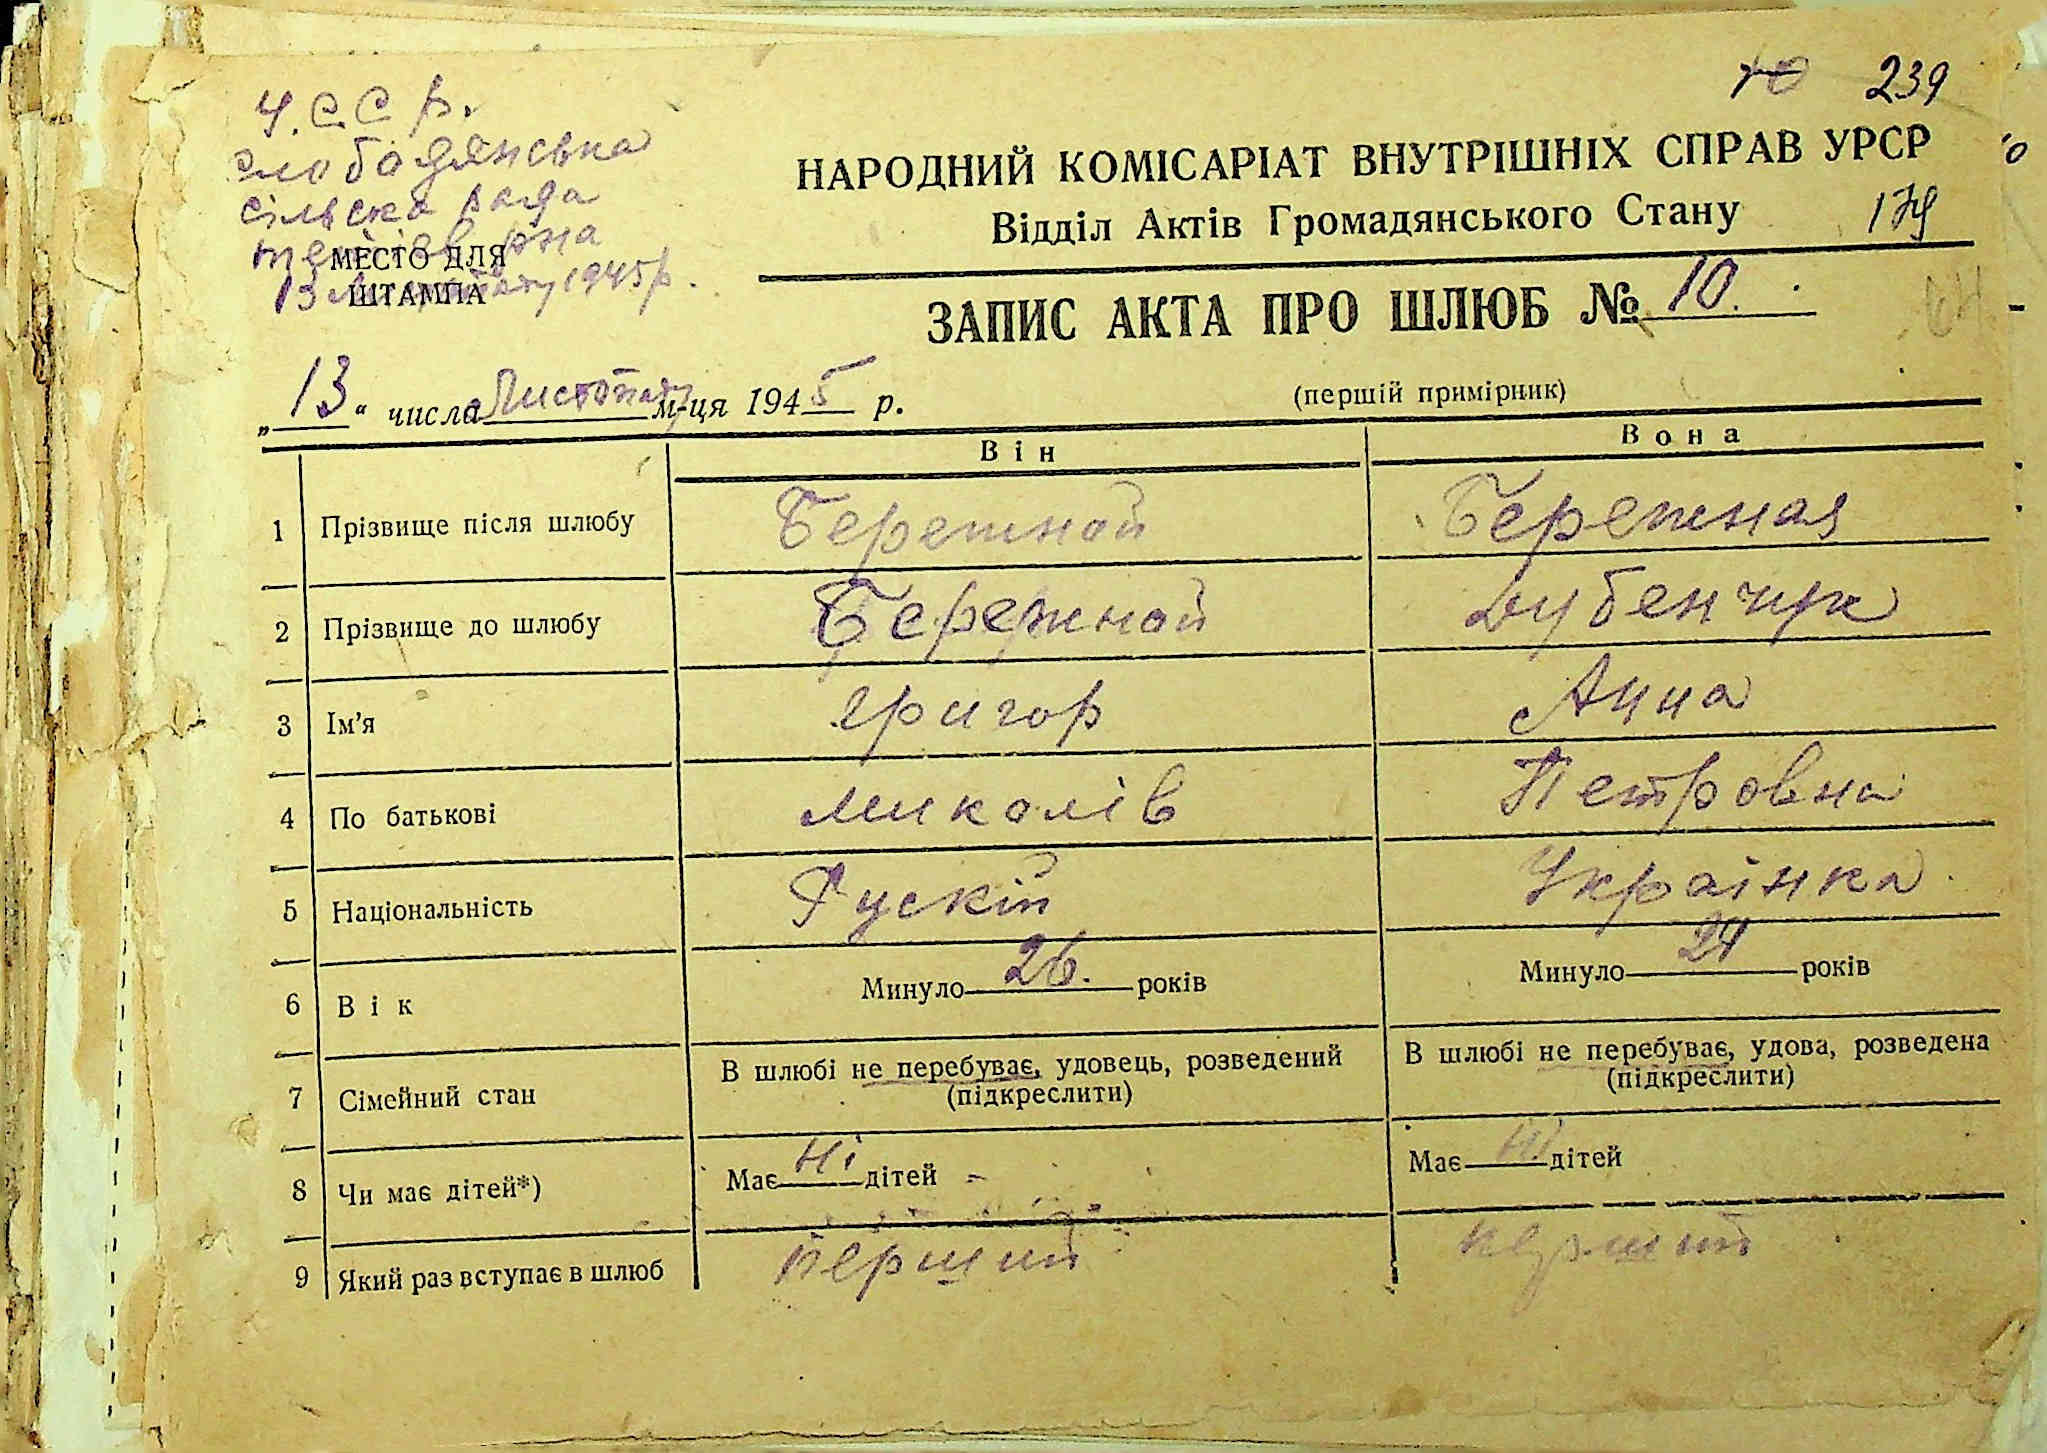 У.С.С.Р.
Слободянська
сільска рада
МЕСТО ДЛЯ
ШТАМПА
13 1945 р.
10 239
НАРОДНИЙ КОМІСАРІАТ ВНУТРІШНІХ СПРАВ УРСР
Відділ Актів Громадянського Стану 179
ЗАПИС АКТА ПРО ШЛЮБ № 10.
„13“ числа Листопаду м-ця 1945 р.
(першій примірник)
Він Вона
1 Прізвище після шлюбу Бережной Бережная
2 Прізвище до шлюбу Бережной Дубенчук
3 Ім’я Григор Анна
4 По батькові Миколів Петровна
5 Національність Рускій Українка
6 Вік Минуло 26. років Минуло 24 років
7 Сімейний стан В шлюбі не перебуває, удовець, розведений (підкреслити) В шлюбі не перебуває, удова, розведена (підкреслити)
8 Чи має дітей*) Має Ні дітей Має Ні дітей
9 Який раз вступає в шлюб перший перший